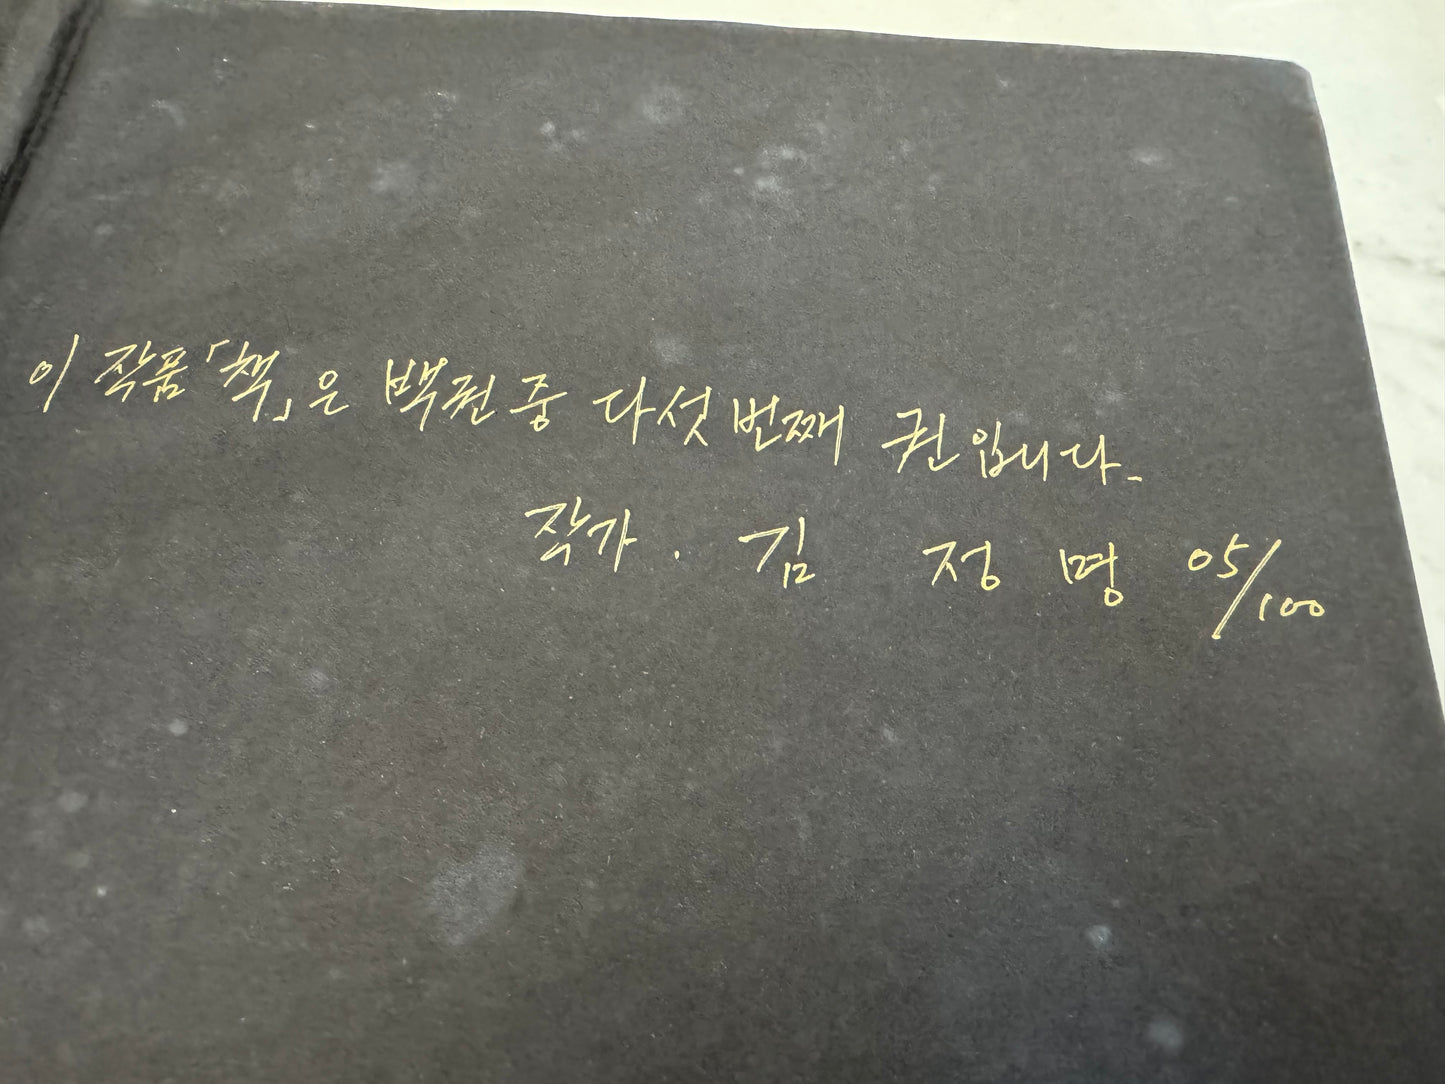 이 작품「책」은 백권 중 다섯 번째 권입니다.
작가. 김 정 명 05/100